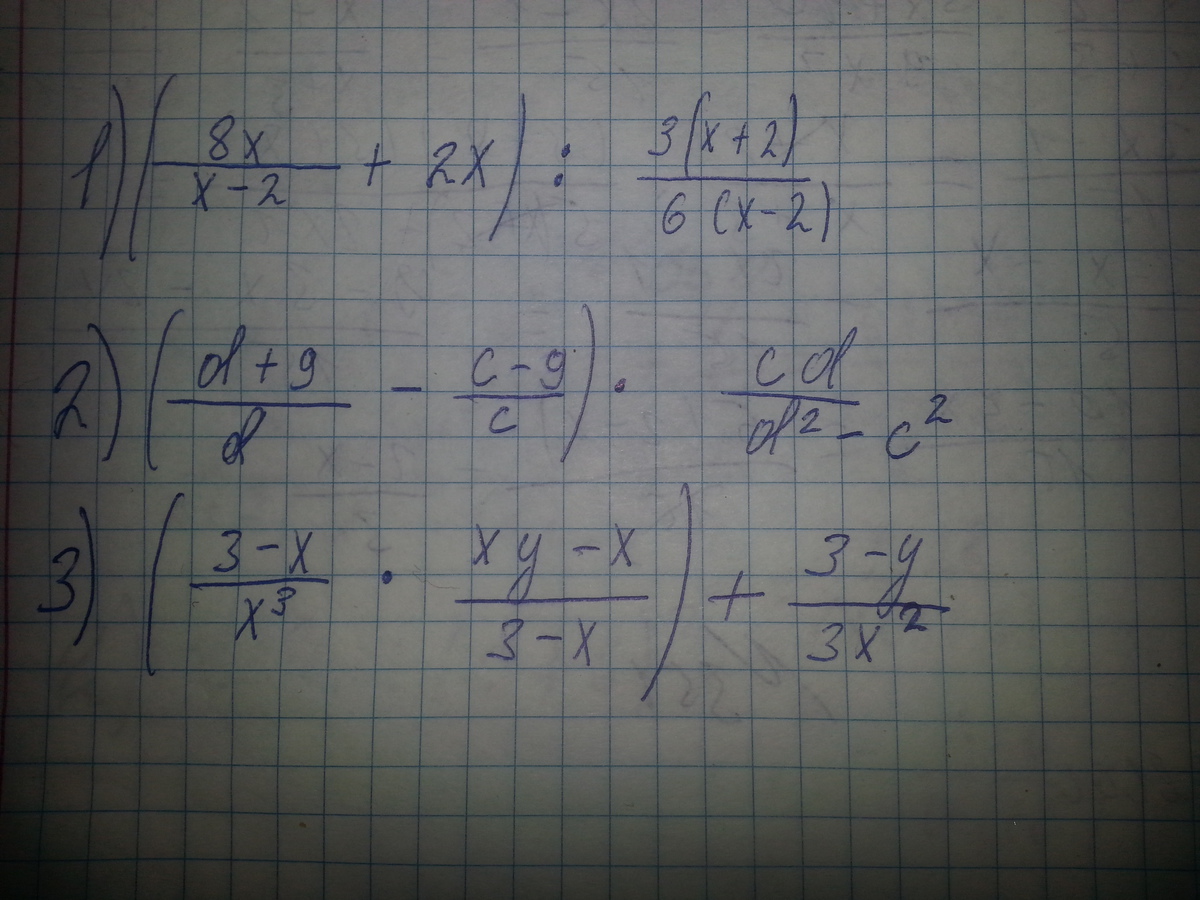 1) (8x/(x-2) + 2x) : 3(x+2)/(6(x-2))
2) ((d+9)/d - (c-9)/c) · cd/(d²-c²)
3) ((3-x)/x³ · (xy-x)/(3-x)) + (3-y)/(3x²)